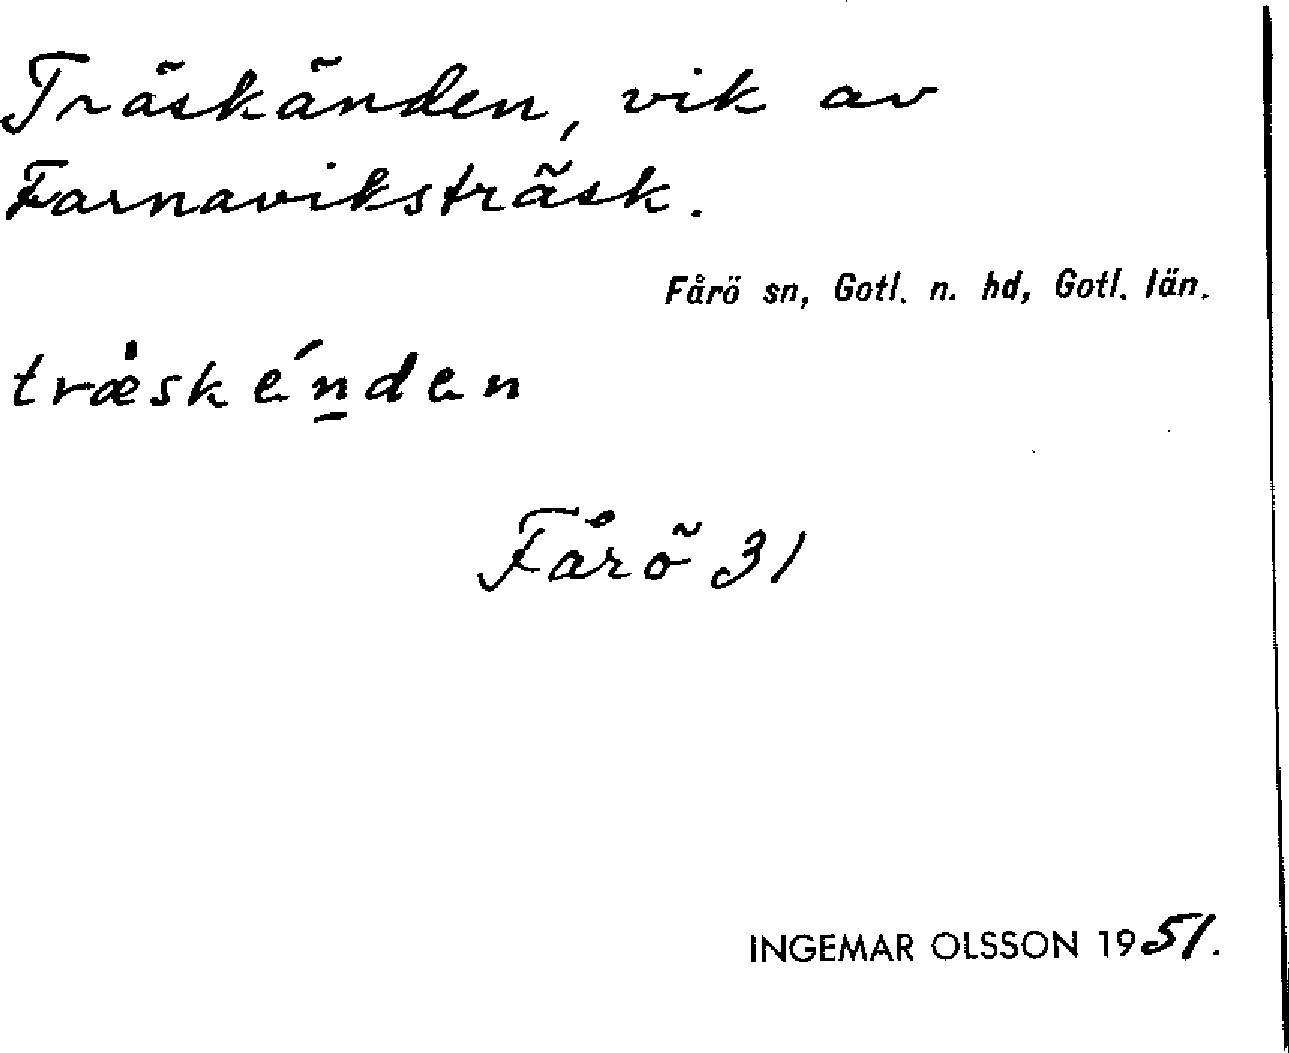 Träskänden, vik av
Farnaviksträsk.
Fårö sn, Gotl. n. hd, Gotl. län.
træ̀skén̲den
Fårö 31
INGEMAR OLSSON 1951.